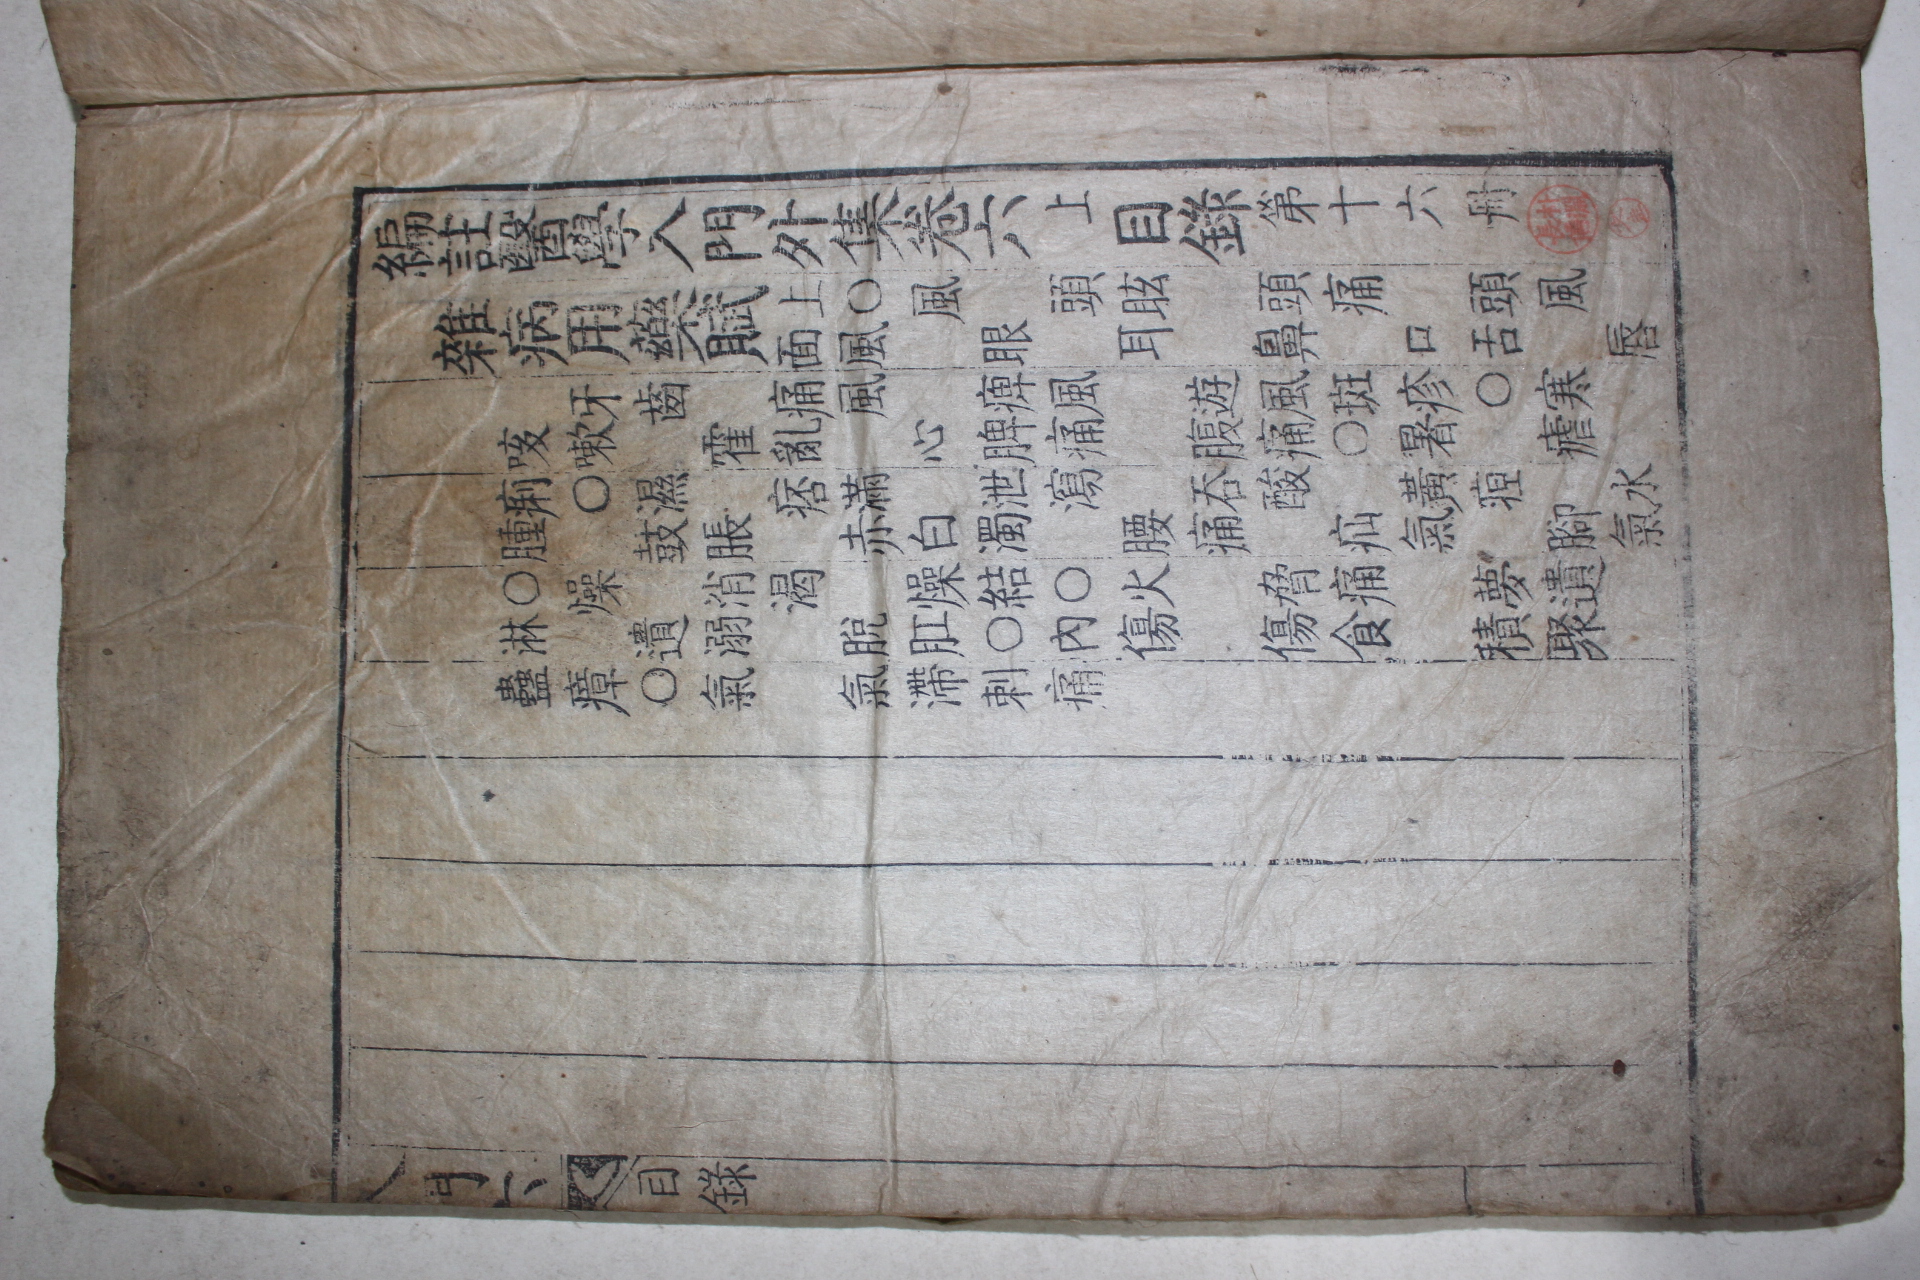 編註醫學入門外集卷六上目錄第十六册
雜病用藥賦
上〇風 頭眩 頭痛 頭風
面風 眼 耳 鼻 口舌 唇
牙齒 痛風 痺風 遊風斑疹〇寒
咳嗽 霍亂 心脾痛 腹痛〇暑 瘧
痢〇濕 痞滿 泄瀉 吞酸 黃疸 水
腫 鼓脹 赤白濁 腰痛 疝氣 腳氣
〇燥 消渴 燥結〇火 脅痛 夢遺
淋 遺溺 脫肛〇內傷 傷食 積聚
蠱瘴〇氣 氣滯刺痛
入門六 目錄